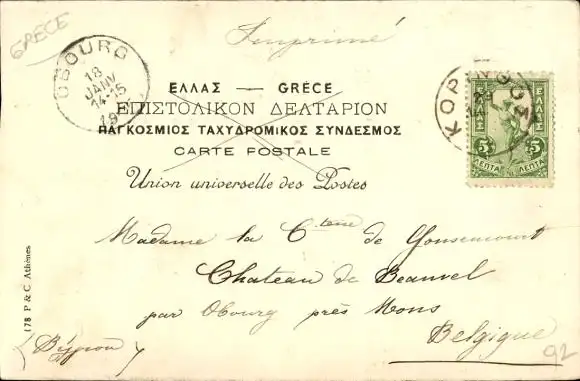 GRÈCE
Imprimé
OBOURG
18
JANV
14-15
19
ΕΛΛΑΣ — GRÈCE
ΕΠΙΣΤΟΛΙΚΟΝ ΔΕΛΤΑΡΙΟΝ
ΠΑΓΚΟΣΜΙΟΣ ΤΑΧΥΔΡΟΜΙΚΟΣ ΣΥΝΔΕΣΜΟΣ
CARTE POSTALE
Union universelle des Postes
ΚΟΡΙΝΘΟΣ
ΕΛΛΑΣ
5 5
ΛΕΠΤΑ ΛΕΠΤΑ
Madame la Ctesse de
Chateau de Beauvel
par Obourg près Mons
Belgique
178 P & C Athènes
92